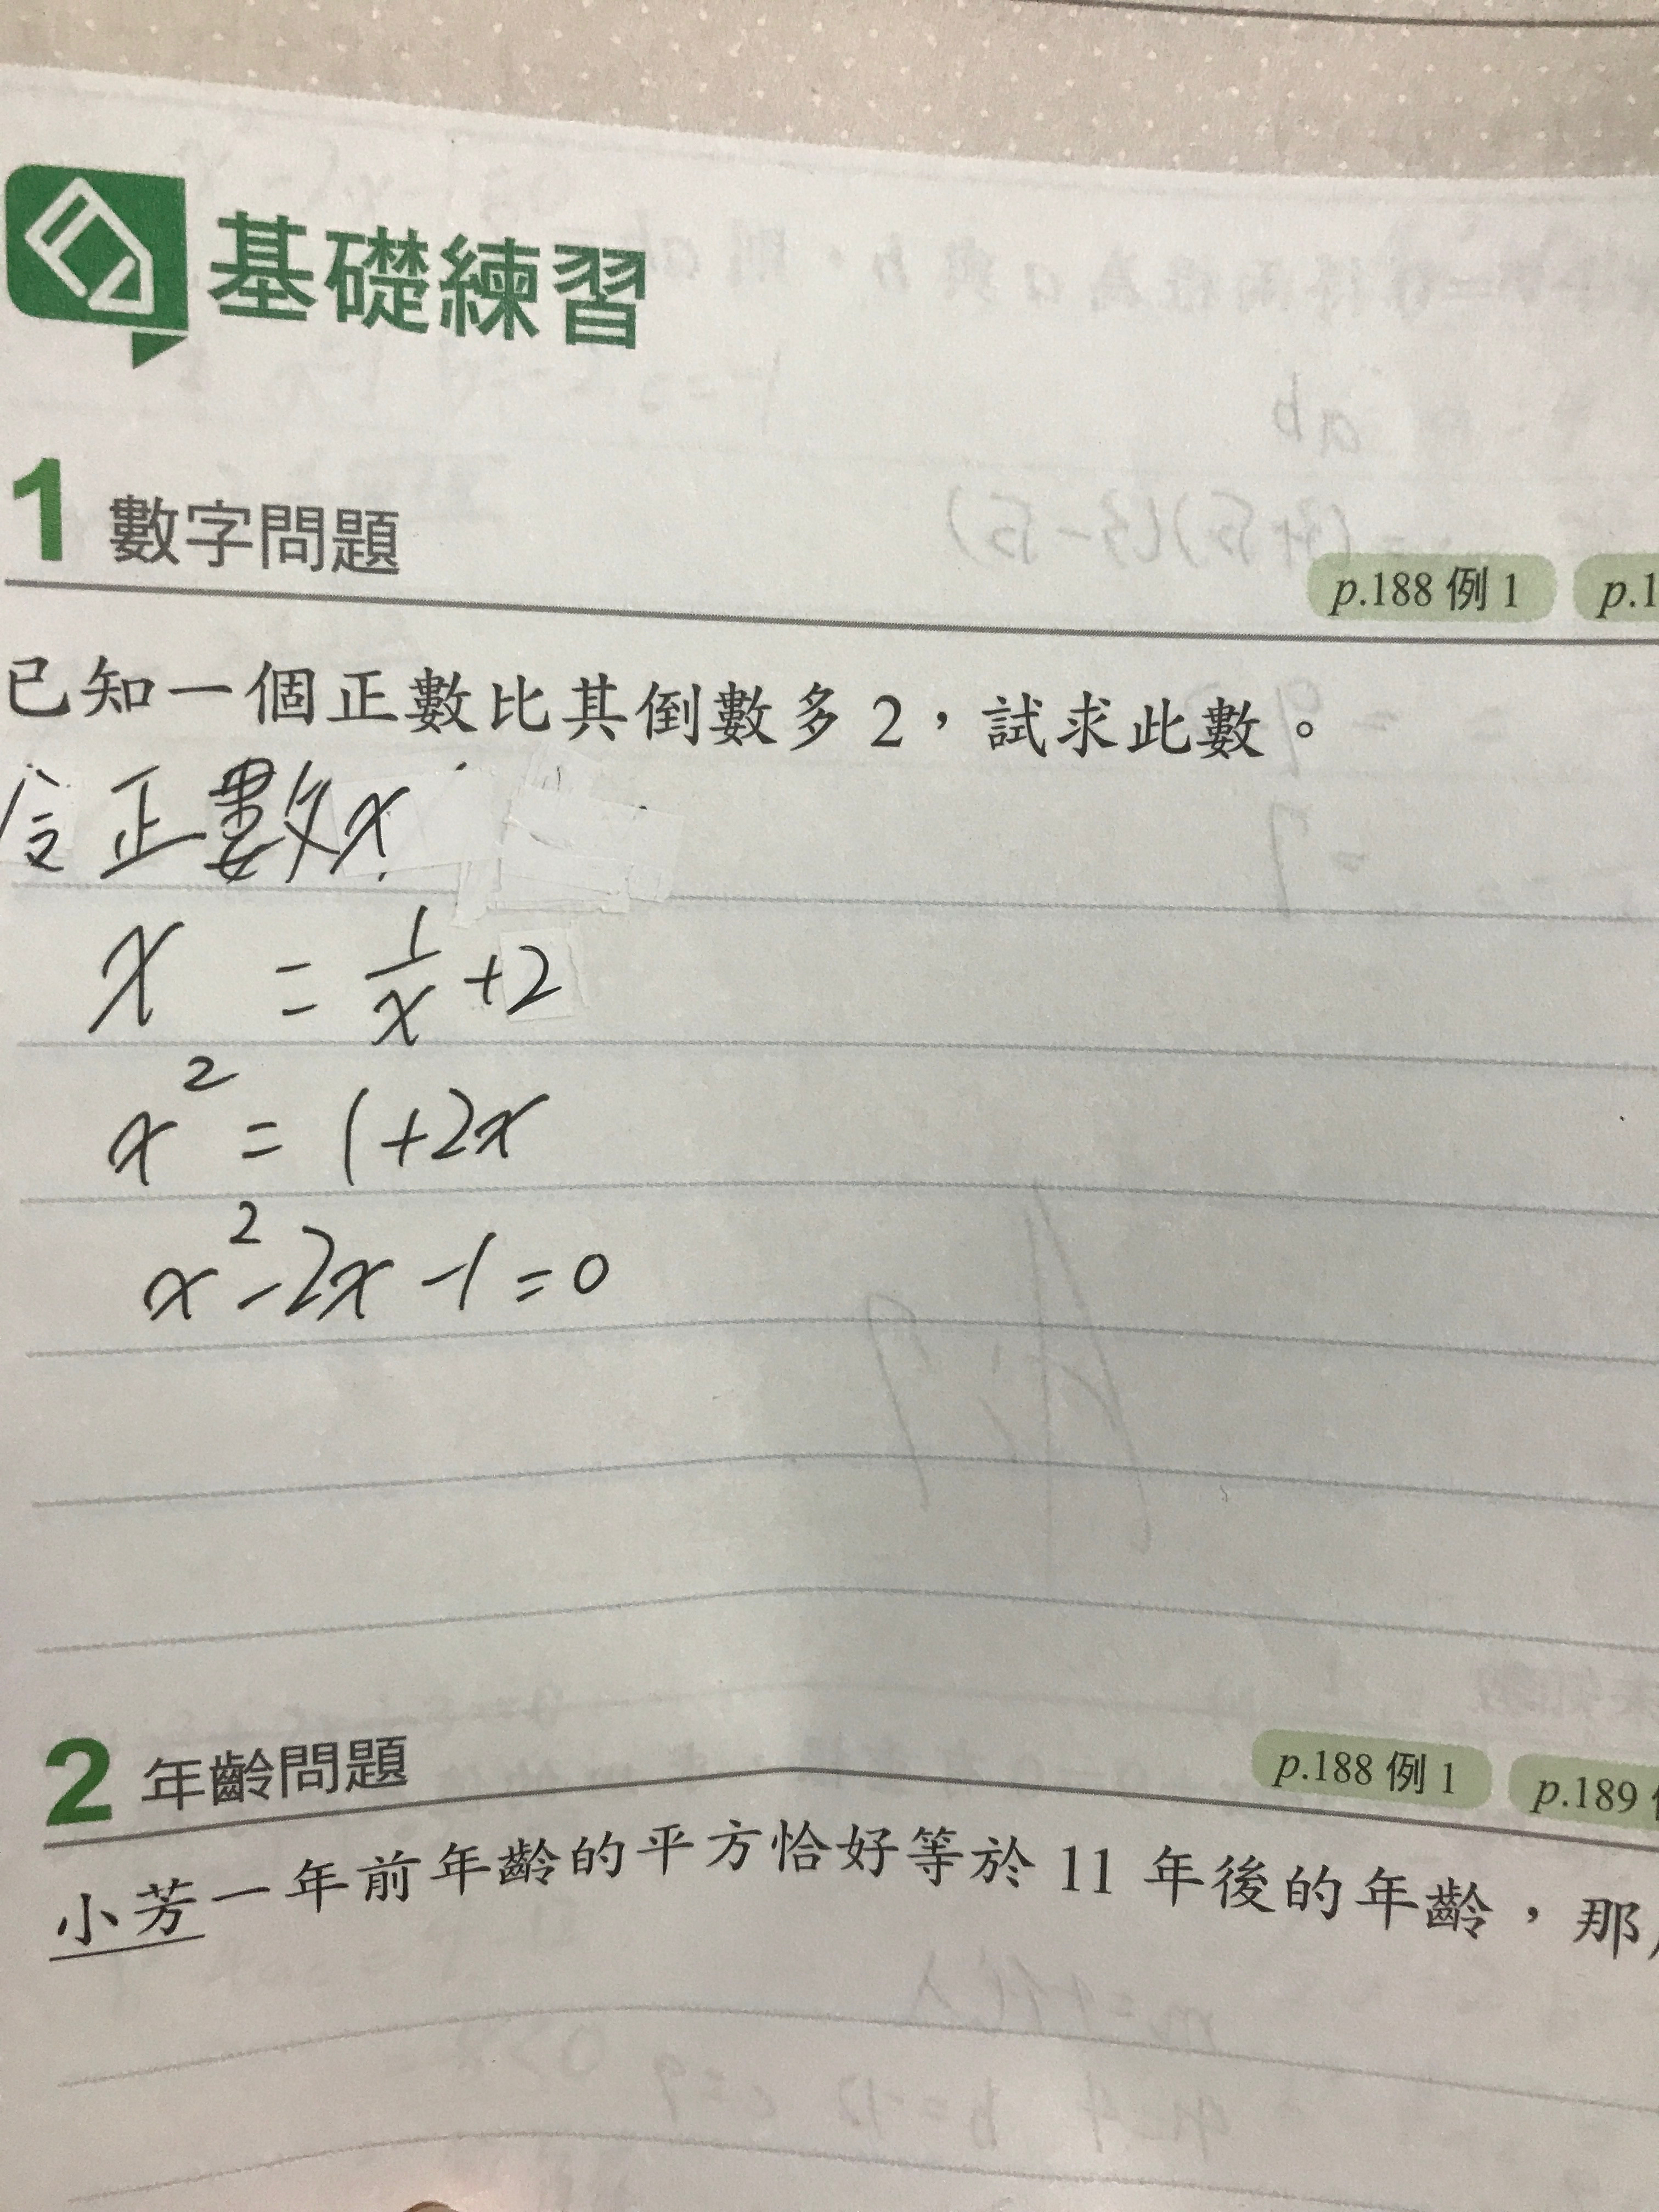 基礎練習
1 數字問題
p.188 例 1 p.1
已知一個正數比其倒數多 2，試求此數。
令正數x
x = 1/x +2
x² = 1+2x
x²-2x-1=0
2 年齡問題
p.188 例 1 p.189
小芳一年前年齡的平方恰好等於 11 年後的年齡，那